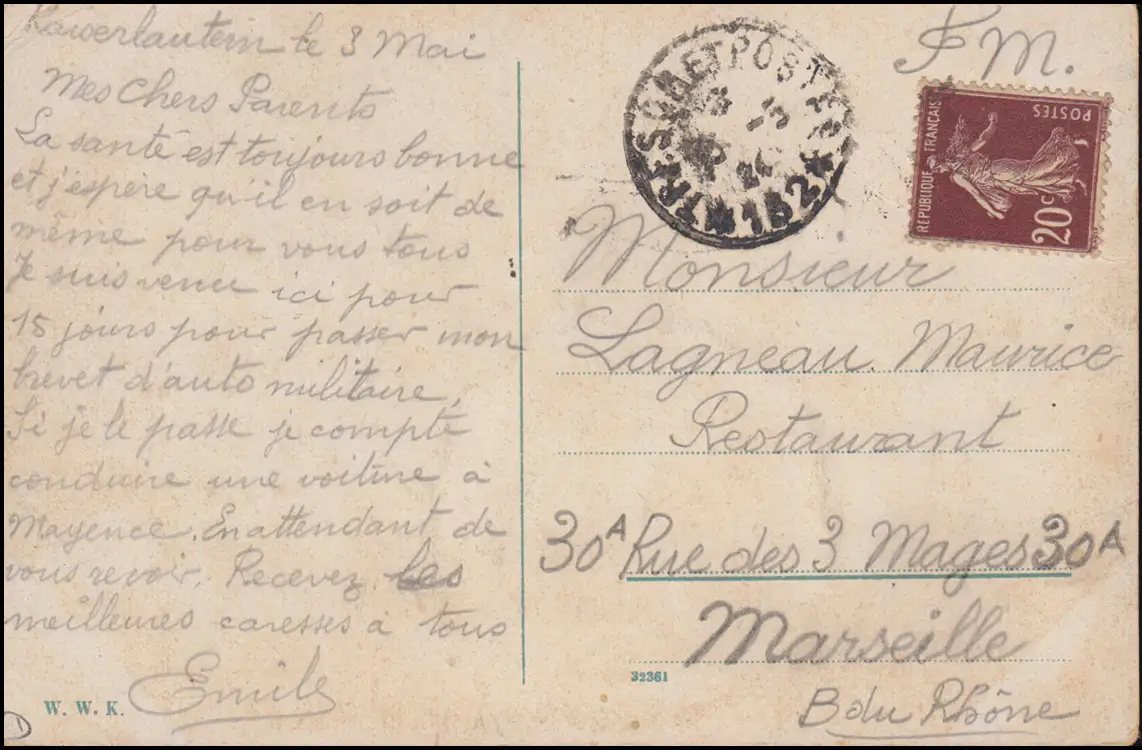 Kaiserlautern le 3 Mai
Mes Chers Parents
La santé est toujours bonne
et j'espère qu'il en soit de
même pour vous tous
Je suis venu ici pour
15 jours pour passer mon
brevet d'auto militaire,
Si je le passe je compte
conduire une voiture à
Mayence. En attendant de
vous revoir. Recevez les
meilleures caresses à tous
Emile
W. W. K.
F M.
POSTES
REPUBLIQUE FRANÇAISE
20c
ET POSTES
*182*
Monsieur
Lagneau Maurice
Restaurant
30A Rue des 3 Mages 30A
Marseille
B du Rhône
32361